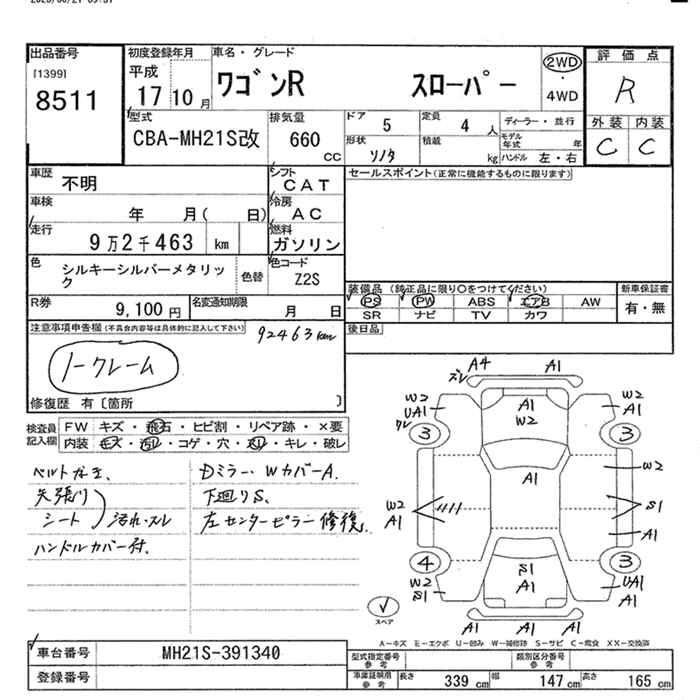 出品番号
[1399]
8511
初度登録年月
平成
17 10 月
車名・グレード
ワゴンR スローパー
2WD
・
4WD
評価点
R
外装 内装
C C
型式
CBA-MH21S改
排気量
660
cc
ドア
5
定員
4 人
ディーラー・並行
形状
ソノタ
積載
kg
モデル年式 年
ハンドル 左・右
車歴
不明
シフト
CAT
セールスポイント(正常に機能するものに限ります)
車検
年 月( 日)
冷房
AC
走行
9万2千463 km
燃料
ガソリン
色
シルキーシルバーメタリック
色替
色コード
Z2S
装備品 (純正品に限り○をつけてください)
PS PW ABS エアB AW
SR ナビ TV カワ
新車保証書
有・無
R券
9,100 円
名変通知期限
月 日
後日品
注意事項申告欄(不具合内容等は具体的に記入して下さい)
92463km
ノークレーム
修復歴 有〔箇所 〕
検査員記入欄
FW キズ・飛石・ヒビ割・リペア跡・×要
内装 キズ・汚レ・コゲ・穴・スレ・キレ・破レ
天張り
シート
汚れ・スレ
ハンドルカバー付.
Dミラー・WカバーA.
下廻りS.
左センターピラー修復.
A4 A1
ズレ
W2
UA1
3
A1
W2
W2
A1
3
A1
W2
W2
A1
S1
A1
4
W2
S1
S1
A1
3
UA1
A1 A1 A1
スペア
A-キズ E-エクボ U-凹み W-補修跡 S-サビ C-腐食 XX-交換済
車台番号
MH21S-391340
登録番号
型式指定番号
参考
類別区分番号
参考
車庫証明用
参考
長さ 339 cm
幅 147 cm
高さ 165 cm